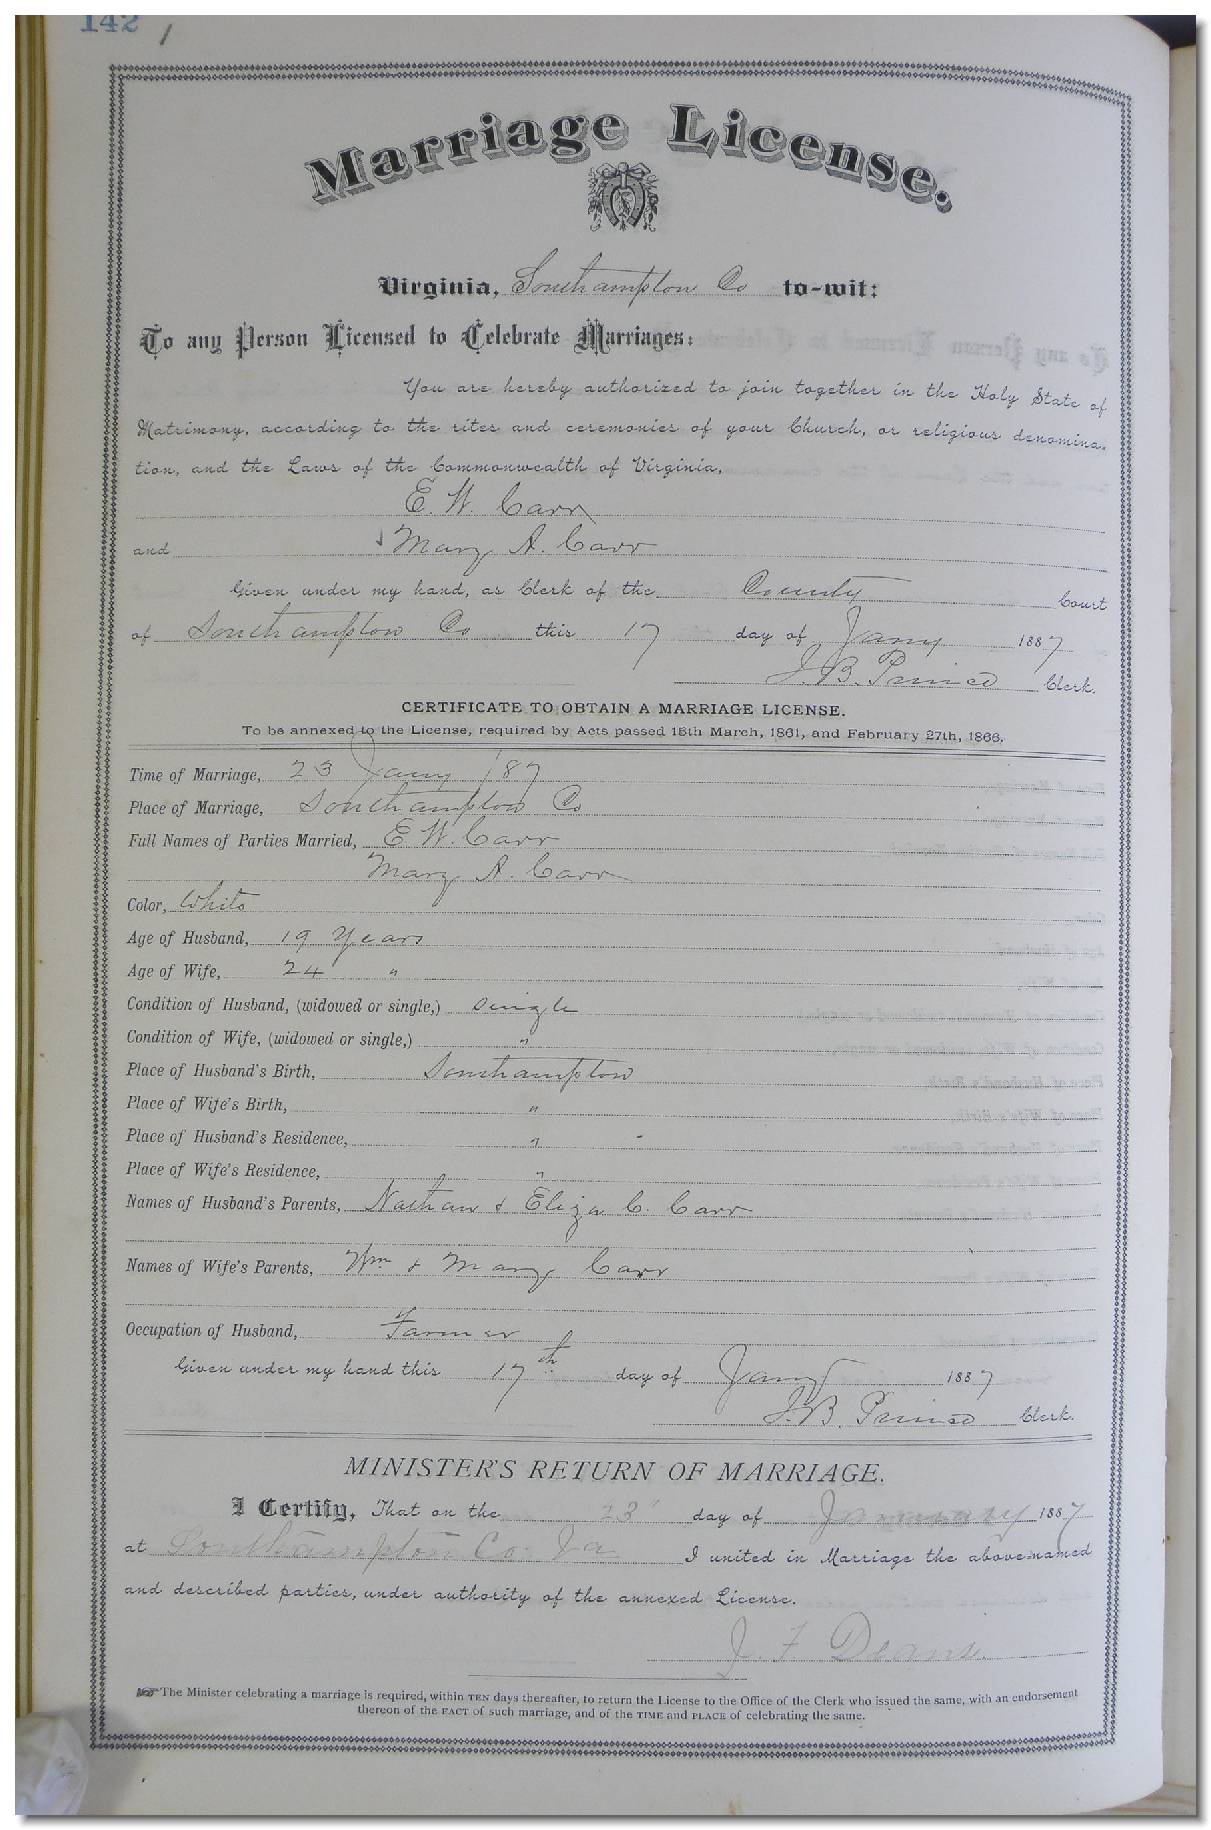 142 1
Marriage License.
Virginia, Southampton Co to-wit:
To any Person Licensed to Celebrate Marriages:
You are hereby authorized to join together in the Holy State of
Matrimony, according to the rites and ceremonies of your Church, or religious denomina-
tion, and the Laws of the Commonwealth of Virginia,
E. W. Carr
and Mary A. Carr
Given under my hand, as Clerk of the County Court
of Southampton Co this 17 day of Jany 1887
J. B. Prince Clerk.
CERTIFICATE TO OBTAIN A MARRIAGE LICENSE.
To be annexed to the License, required by Acts passed 15th March, 1861, and February 27th, 1866.
Time of Marriage, 23 Jany /87
Place of Marriage, Southampton Co
Full Names of Parties Married, E W. Carr
Mary A. Carr
Color, White
Age of Husband, 19 Years
Age of Wife, 24 "
Condition of Husband, (widowed or single,) Single
Condition of Wife, (widowed or single,) "
Place of Husband's Birth, Southampton
Place of Wife's Birth, "
Place of Husband's Residence, "
Place of Wife's Residence, "
Names of Husband's Parents, Nathan & Eliza C. Carr
Names of Wife's Parents, Wm & Mary Carr
Occupation of Husband, Farmer
Given under my hand this 17th day of Jany 1887
J. B. Prince Clerk.
MINISTER'S RETURN OF MARRIAGE.
I Certify, That on the 23 day of January 1887
at Southampton Co Va I united in Marriage the above-named
and described parties, under authority of the annexed License.
J. F. Deans.
The Minister celebrating a marriage is required, within TEN days thereafter, to return the License to the Office of the Clerk who issued the same, with an endorsement
thereon of the FACT of such marriage, and of the TIME and PLACE of celebrating the same.